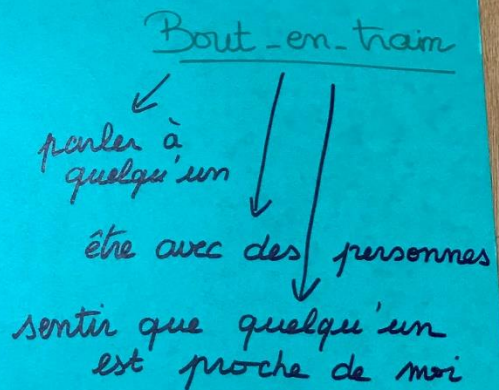 Bout-en-train
parler à
quelqu'un
être avec des personnes
sentir que quelqu'un
est proche de moi